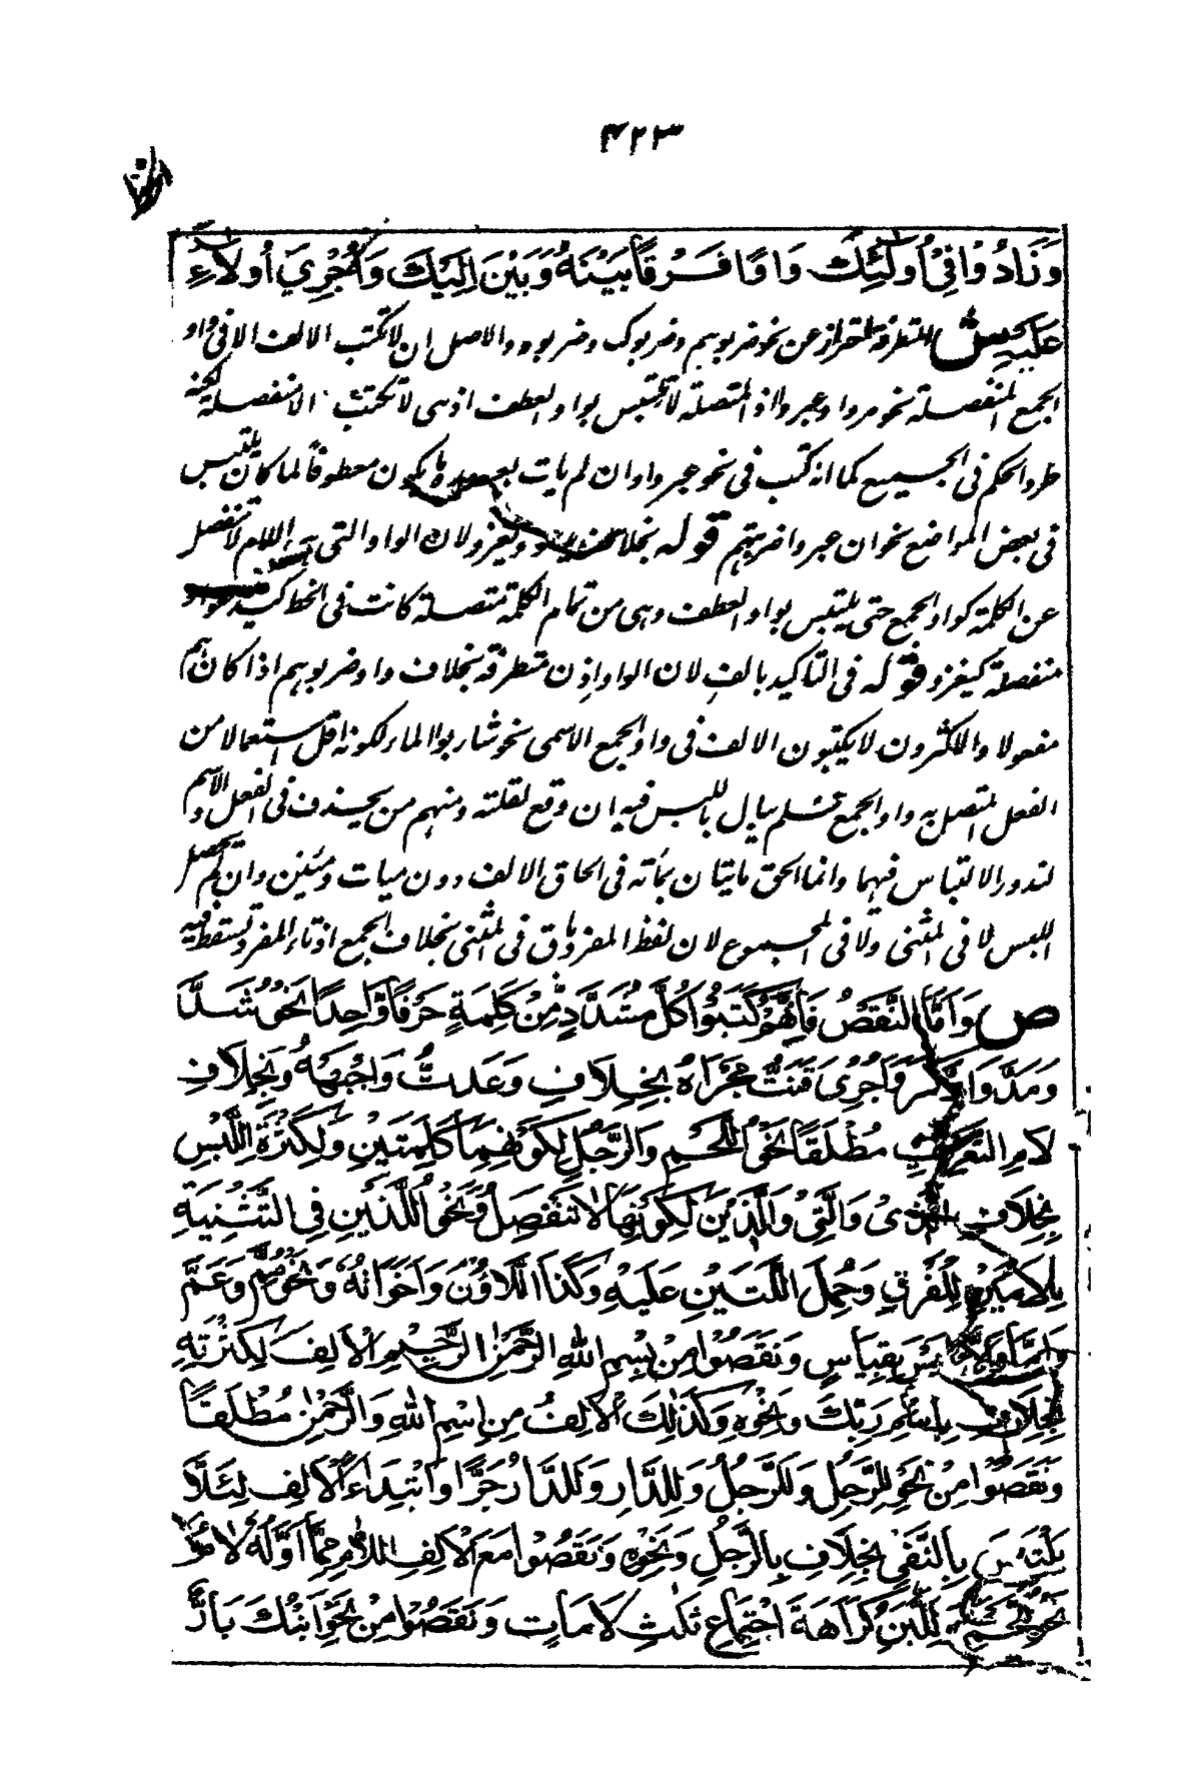 ۴۲۳
وَزَادُوْا فِيْ أُولٰئِكَ وَاوًا فَرْقًا بَيْنَهُ وَبَيْنَ اِلَيْكَ وَاُجْرِيَ أُولَاءِ
عَلَيْهِ ش المتطرفة احتراز عن نحو ضربوهم وضربوك وضربوه والاصل ان لا تكتب الالف الا فى واو
الجمع المنفصلة نحو مروا وعبروا اذ المتصلة لا تلتبس بواو العطف اذ هى لا تكتب الا منفصلة لكنه
طرد الحكم فى الجميع كما انه كتب فى نحو عبروا وان لم يات بعده ما يكون معطوفا لما كان يلتبس
فى بعض المواضع نحو ان عبروا ضربتهم قوله بخلاف يدعو ويغزو لان الواو التى هى اللام لا تنفصل
عن الكلمة كواو الجمع حتى يلتبس بواو العطف وهى من تمام الكلمة متصلة كانت فى الخط كيدعو او
منفصلة كيغزو قوله فى التاكيد بالف لان الواو اذن متطرفة بخلاف واو ضربوهم اذا كان هم
مفعولا والاكثرون لا يكتبون الالف فى واو الجمع الاسمى نحو شاربوا الماء لكونه اقل استعمالا من
الفعل المتصل به واو الجمع فلم يبال باللبس فيه ان وقع لقلته ومنهم من يحذف فى الفعل والاسم
لندور الالتباس فيهما وانما الحق مايتان بمأته فى الحاق الالف دون ميات ومئين وان لم يحصل
اللبس لا فى المثنى ولا فى المجموع لان لفظ المفرد باق فى المثنى بخلاف الجمع اذ تاء المفرد تسقط فيه
ص وَاَمَّا النَّقَصُ فَاِنَّهُمْ كَتَبُوْا كُلَّ مُشَدَّدٍ مِنْ كَلِمَةٍ حَرْفًا وَاحِدًا نَحْوُ شَدَّ
وَمَدَّ وَادَّكَرَ وَاُجْرِىَ قَتَتُّ مَجْرَاهُ بِخِلَافِ وَعَدتُّ وَاجْبَهْهُ وَبِخِلَافِ
لَامِ التَّعْرِيْفِ مُطْلَقًا نَحْوُ اللَّحْمِ وَالرَّجُلِ لِكَوْنِهِمَا كَلِمَتَيْنِ وَلِكَثْرَةِ اللَّبْسِ
بِخِلَافِ الَّذِىْ وَالَّتِىْ وَالَّذِيْنَ لِكَوْنِهَا لَا تَنْفَصِلُ وَنَحْوُ اللَّذَيْنِ فِى التَّثْنِيَةِ
بِلَامَيْنِ لِلْفَرْقِ وَحُمِلَ اللَّتَيْنِ عَلَيْهِ وَكَذَا اللَّاؤُنَ وَاَخَوَاتُهُ وَنَحْوُ مِمَّ وَعَمَّ
وَاِمَّا وَاِلَّا لَيْسَ بِقِيَاسٍ وَنَقَصُوْا مِنْ بِسْمِ اللهِ الرَّحْمٰنِ الرَّحِيْمِ الْاَلِفَ لِكَثْرَتِهِ
بِخِلَافِ بِاسْمِ رَبِّكَ وَنَحْوِهِ وَكَذٰلِكَ الْاَلِفُ مِنِ اسْمِ اللهِ وَالرَّحْمٰنِ مُطْلَقًا
وَنَقَصُوْا مِنْ نَحْوِ لِلرَّجُلِ وَلَلرَّجُلُ وَلِلدَّارِ وَلَلدَّارُ جَرًّا وَابْتِدَاءً الْاَلِفَ لِئَلَّا
يَلْتَبِسَ بِالنَّفْىِ بِخِلَافِ بِالرَّجُلِ وَنَحْوِهِ وَنَقَصُوْا مَعَ الْاَلِفِ اللَّامَ مِمَّا اَوَّلُهُ لَامٌ
نَحْوُ لِلَّحْمِ وَلِلَّبَنِ كَرَاهَةَ اجْتِمَاعِ ثَلٰثِ لَامَاتٍ وَنَقَصُوْا مِنْ نَحْوِ اَبْنُكَ بَارٌّ